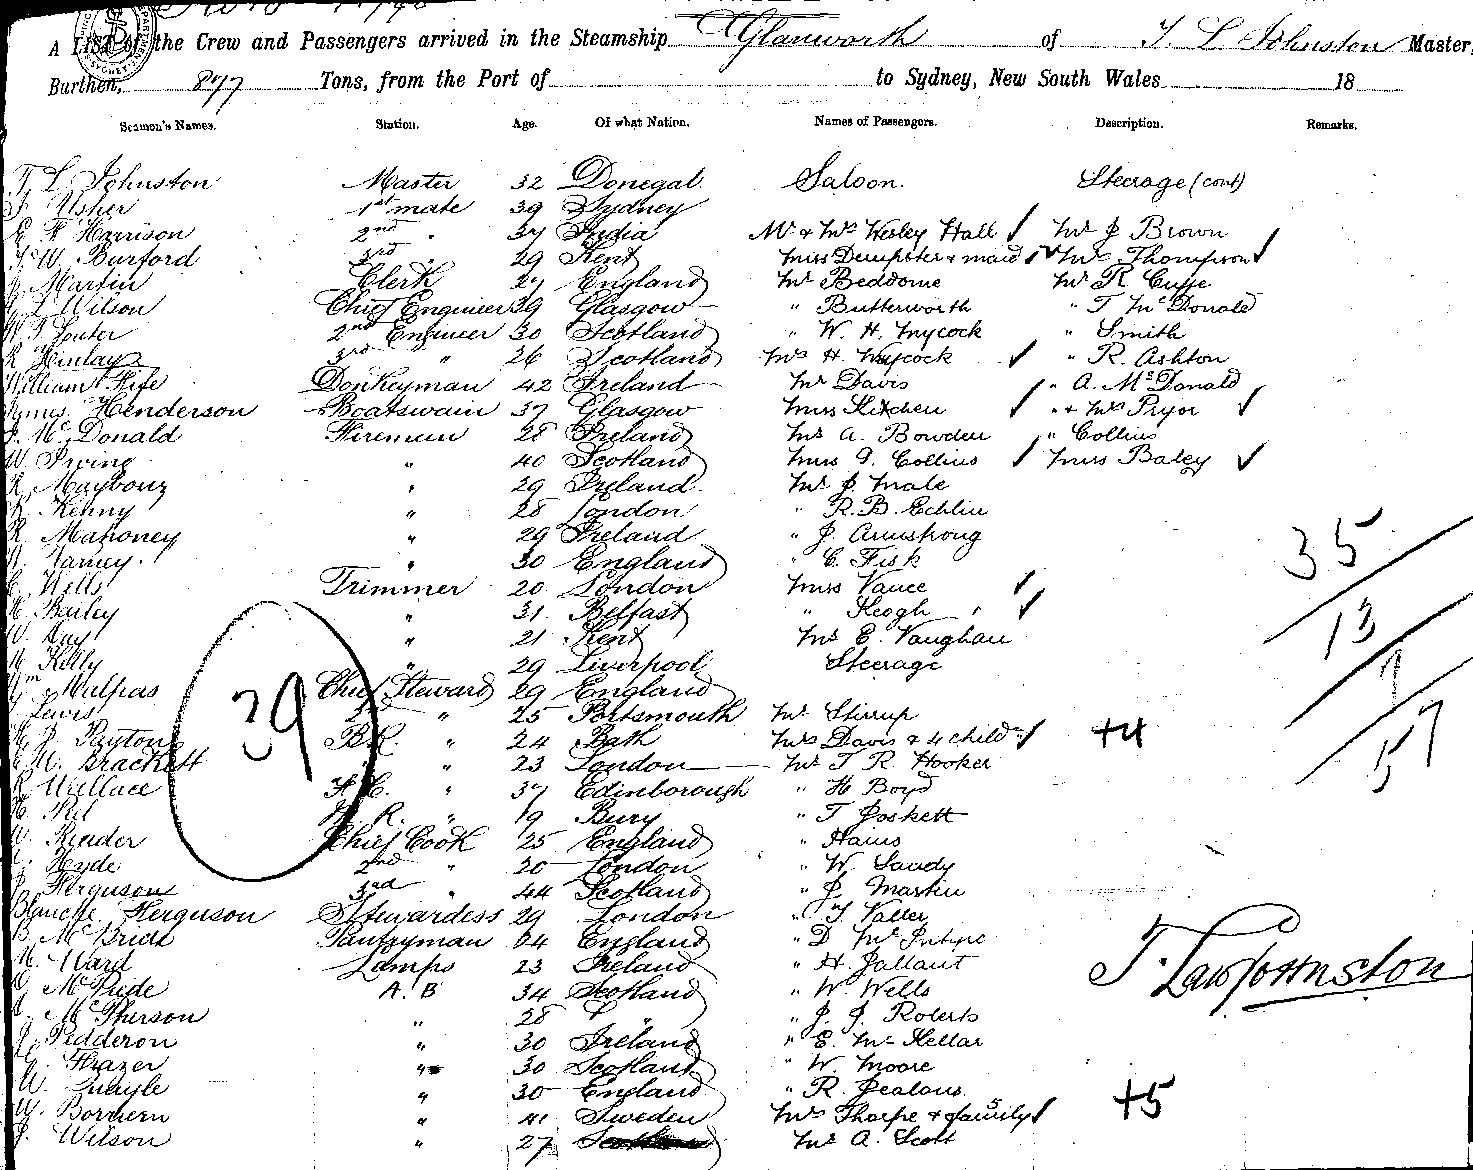 A LIST of the Crew and Passengers arrived in the Steamship Glanworth of T. L. Johnston Master,
Burthen, 877 Tons, from the Port of to Sydney, New South Wales 18
Seamen's Names. Station. Age. Of what Nation. Names of Passengers. Description. Remarks.
T. L. Johnston Master 32 Donegal Saloon. Steerage (cont)
Usher 1st mate 39 Sydney
E F Harrison 2nd " 37 India Mr & Mrs Wesley Hall ✓ Mr J Brown
W. Burford 3rd 29 Kent Miss Dempster & maid ✓ Mrs Thompson ✓
J Martin Clerk 27 England Mr Beddome Mr R Cuffe
L Wilson Chief Engineer 29 Glasgow " Butterworth " T McDonald
2nd Engineer 30 Scotland " W. H. Smith
R Finlay 3rd " 26 Scotland Mrs H. ✓ " R. Ashton
William Fife Donkeyman 42 Ireland Mr Davis ✓ " A. McDonald
James Henderson Boatswain 37 Glasgow Miss Kitchen ✓ " & Mrs Pryor ✓
J. McDonald Fireman 28 Ireland Mr A. Bowden " Collins
W. Irving " 40 Scotland Miss G. Collins ✓ Miss Baley ✓
" 29 Ireland Mr J Male
R Kenny " 28 London " R. B. Echlin
R Mahoney " 29 Ireland " J. Armstrong 35
" 30 England " C. Fisk
C Wells Trimmer 20 London Miss Vance ✓
Bailey " 31 Belfast " Keogh " ✓
W. Day " 21 Kent Mrs E. Vaughan 13
M Kelly " 29 Liverpool Steerage
Wm Malpas Chief Steward 29 England
Lewis 2nd " 25 Portsmouth Mr Stirrup
J. Payton B.R. " 24 Bath Mrs Davis & 4 child ✓ +4
W. Brackett " 23 London Mr T R Hooker 57
39
R Wallace F.C. " 37 Edinborough " H Boyd
R. " 19 Bury " T Joskett
W. Render Chief Cook 25 England " Hains
Hyde 2nd " 20 London " W. Saudy
J Ferguson 3rd " 44 Scotland " J. Martin
Blanche Ferguson Stewardess 29 London " T Valler
B. McBride Pantryman 24 England " D McIntyre
M. Ward Lamps 23 Ireland " H. Gallant
T. Law Johnston
D McPride A. B 34 Scotland " W. Wells
McPherson " 28 " " J. J. Roberts
J Pedderon " 30 Ireland " E. McKellar
Frazer " 30 Scotland " W. Moore
W. Quayle " 30 England " R. Jealous
W. " 41 Sweden Mrs Tharpe & family 5 ✓ +5
J. Wilson " 27 Mr A. Scott